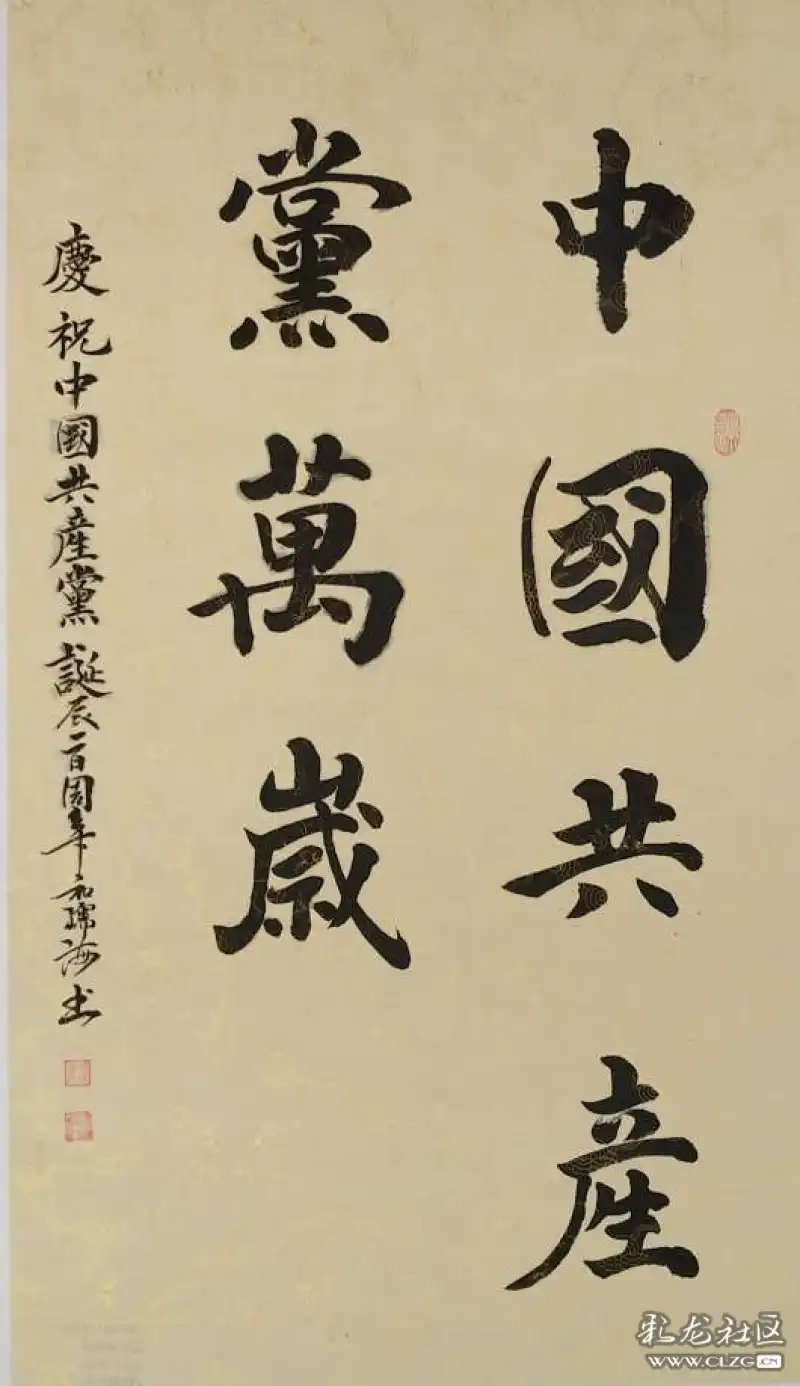 中國共產
黨萬歲
慶祝中國共產黨誕辰一百周年 和瑞海书
彩龙社区
WWW.CLZG.CN